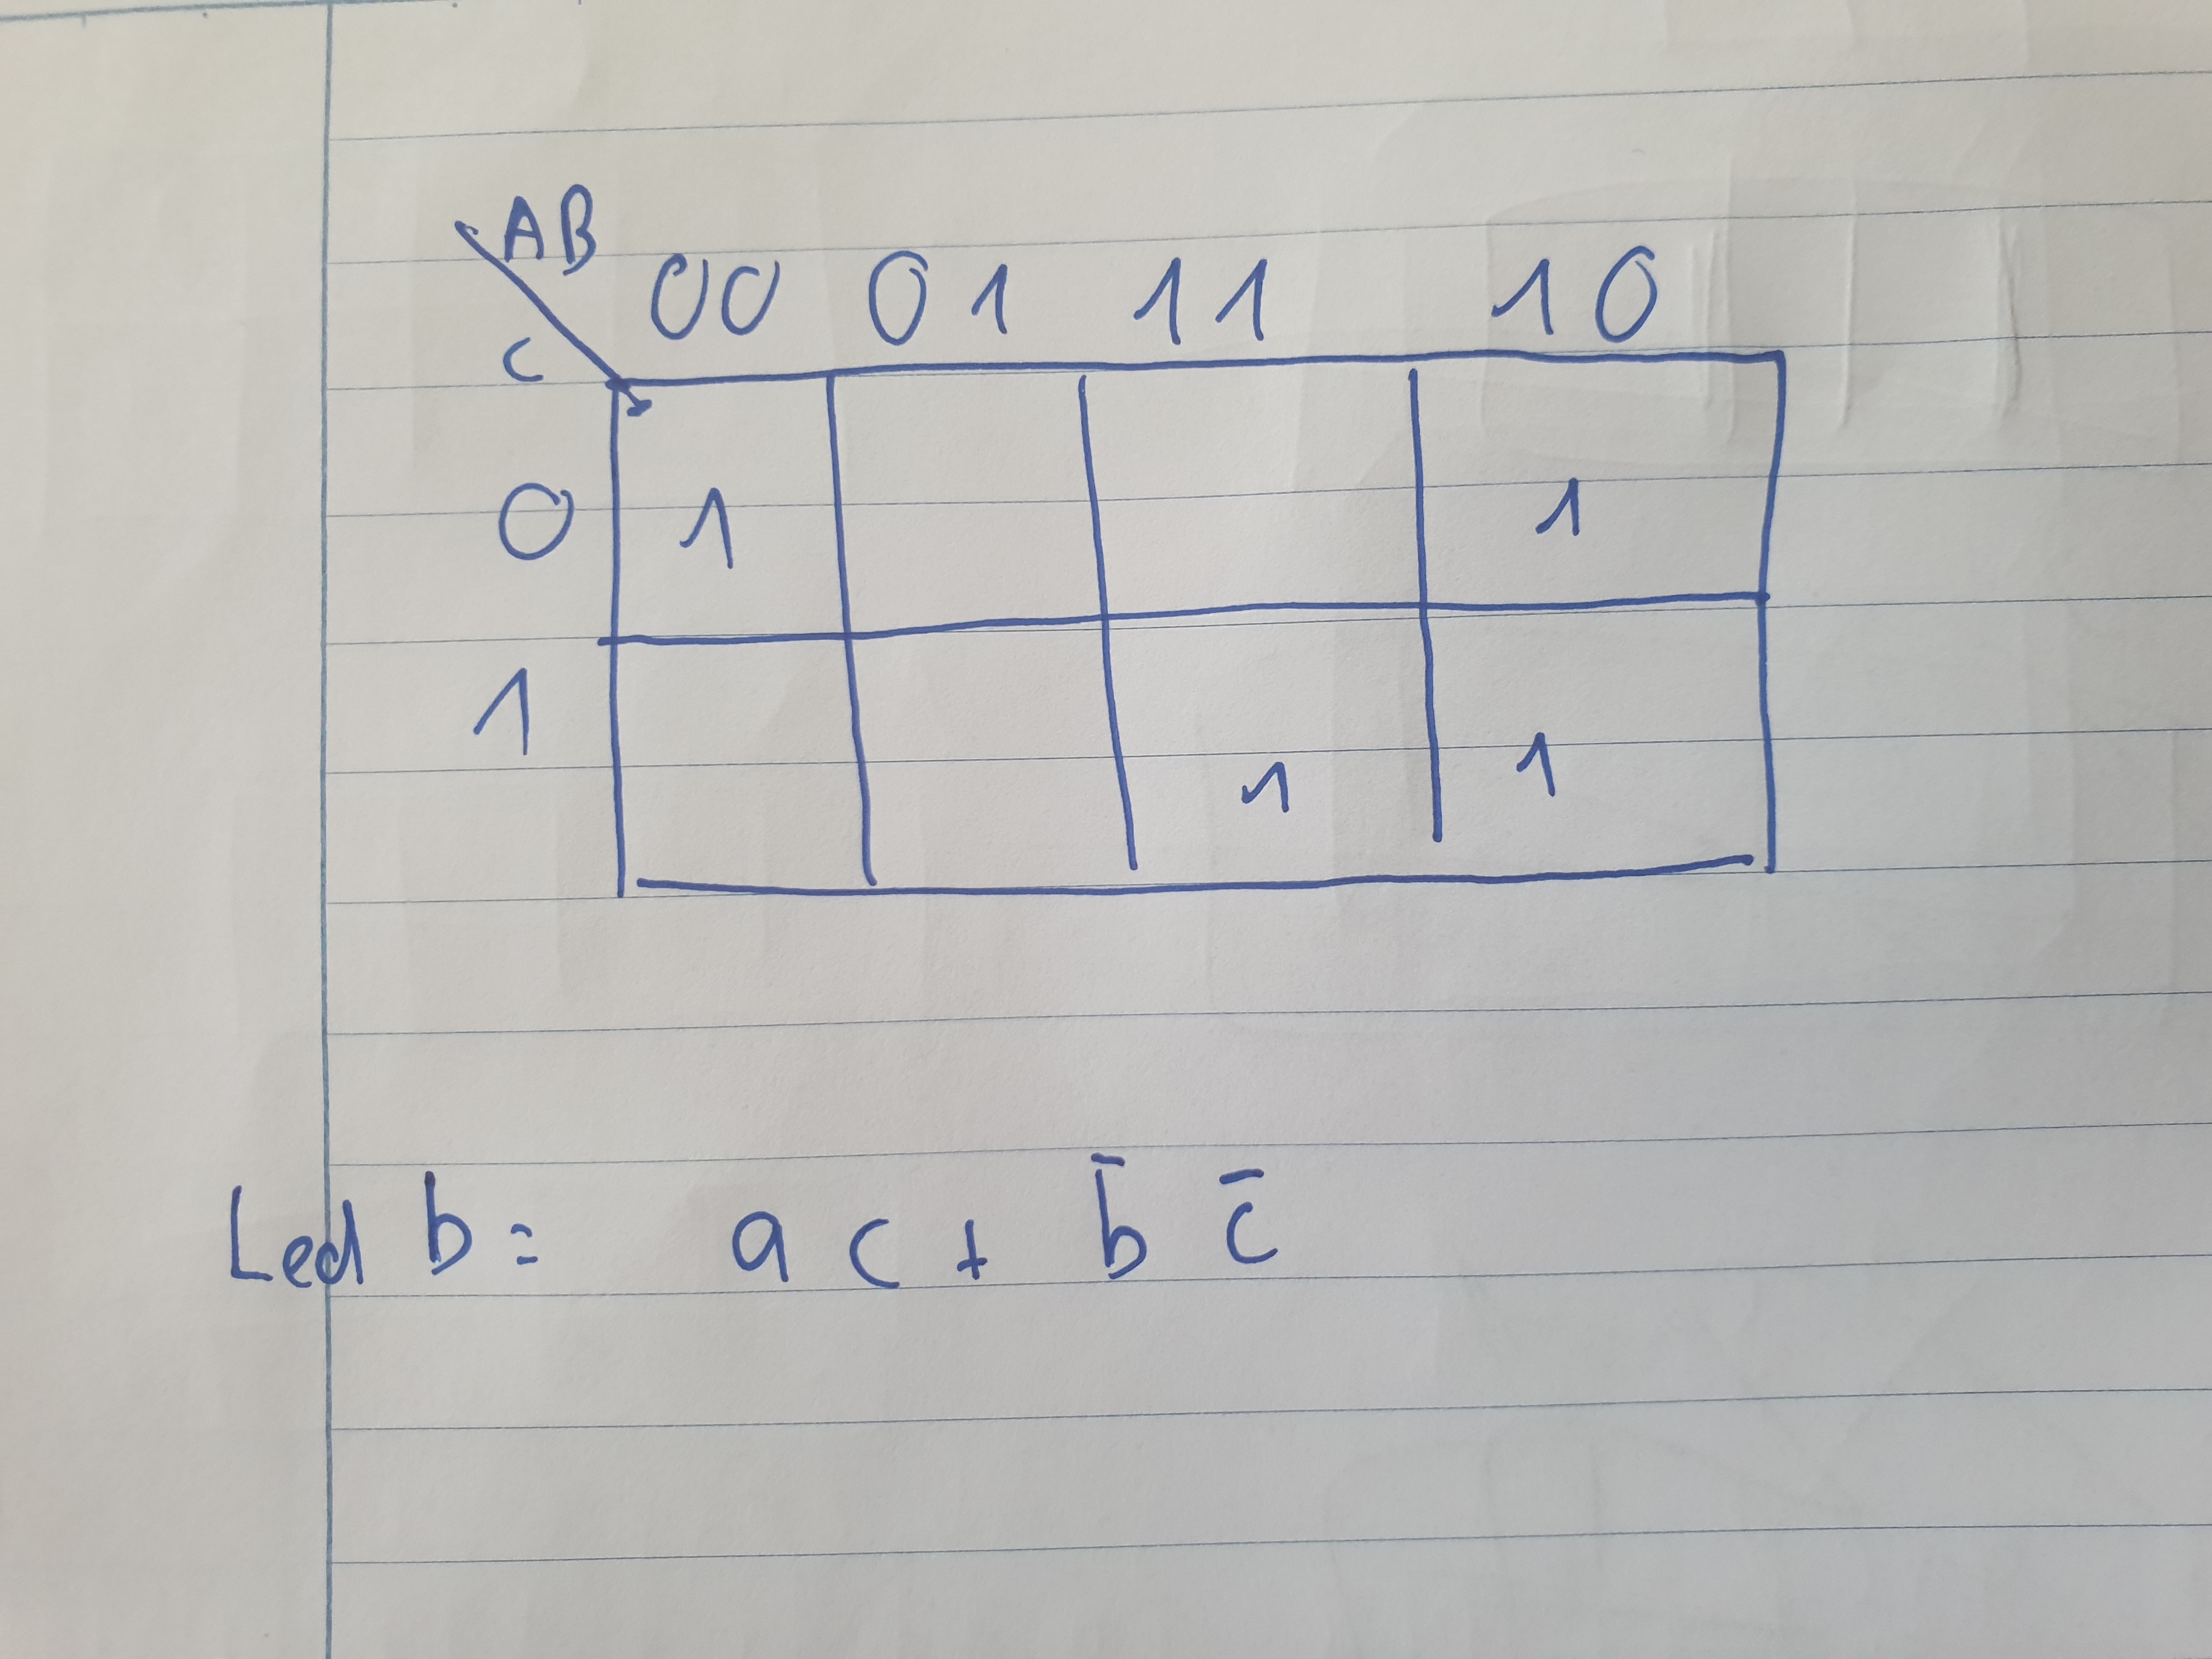 AB 00 01 11 10
C
0 1 1
1 1 1
Led b = a c + b̄ c̄